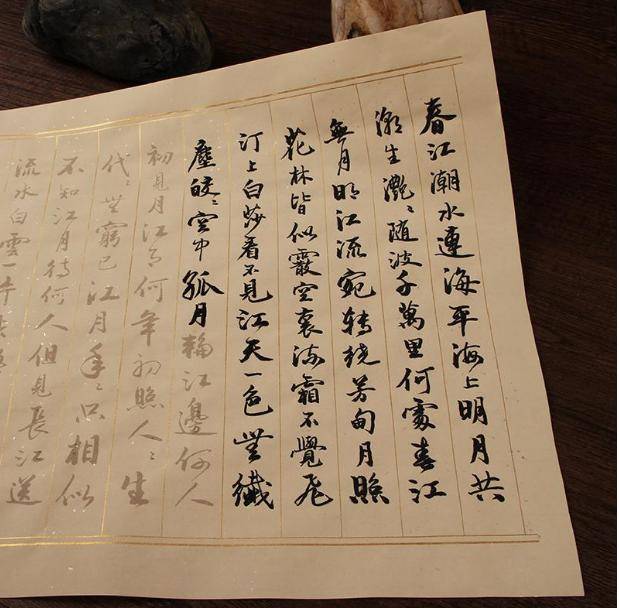 春江潮水連海平海上明月共
潮生灩〻随波千萬里何處春江
無月明江流宛轉繞芳甸月照
花林皆似霰空裏流霜不覺飛
汀上白沙看不見江天一色無纖
塵皎〻空中孤月輪江邊何人
初見月江月何年初照人〻生
代〻無窮已江月年〻只相似
不知江月待何人但見長江送
流水白雲一片去